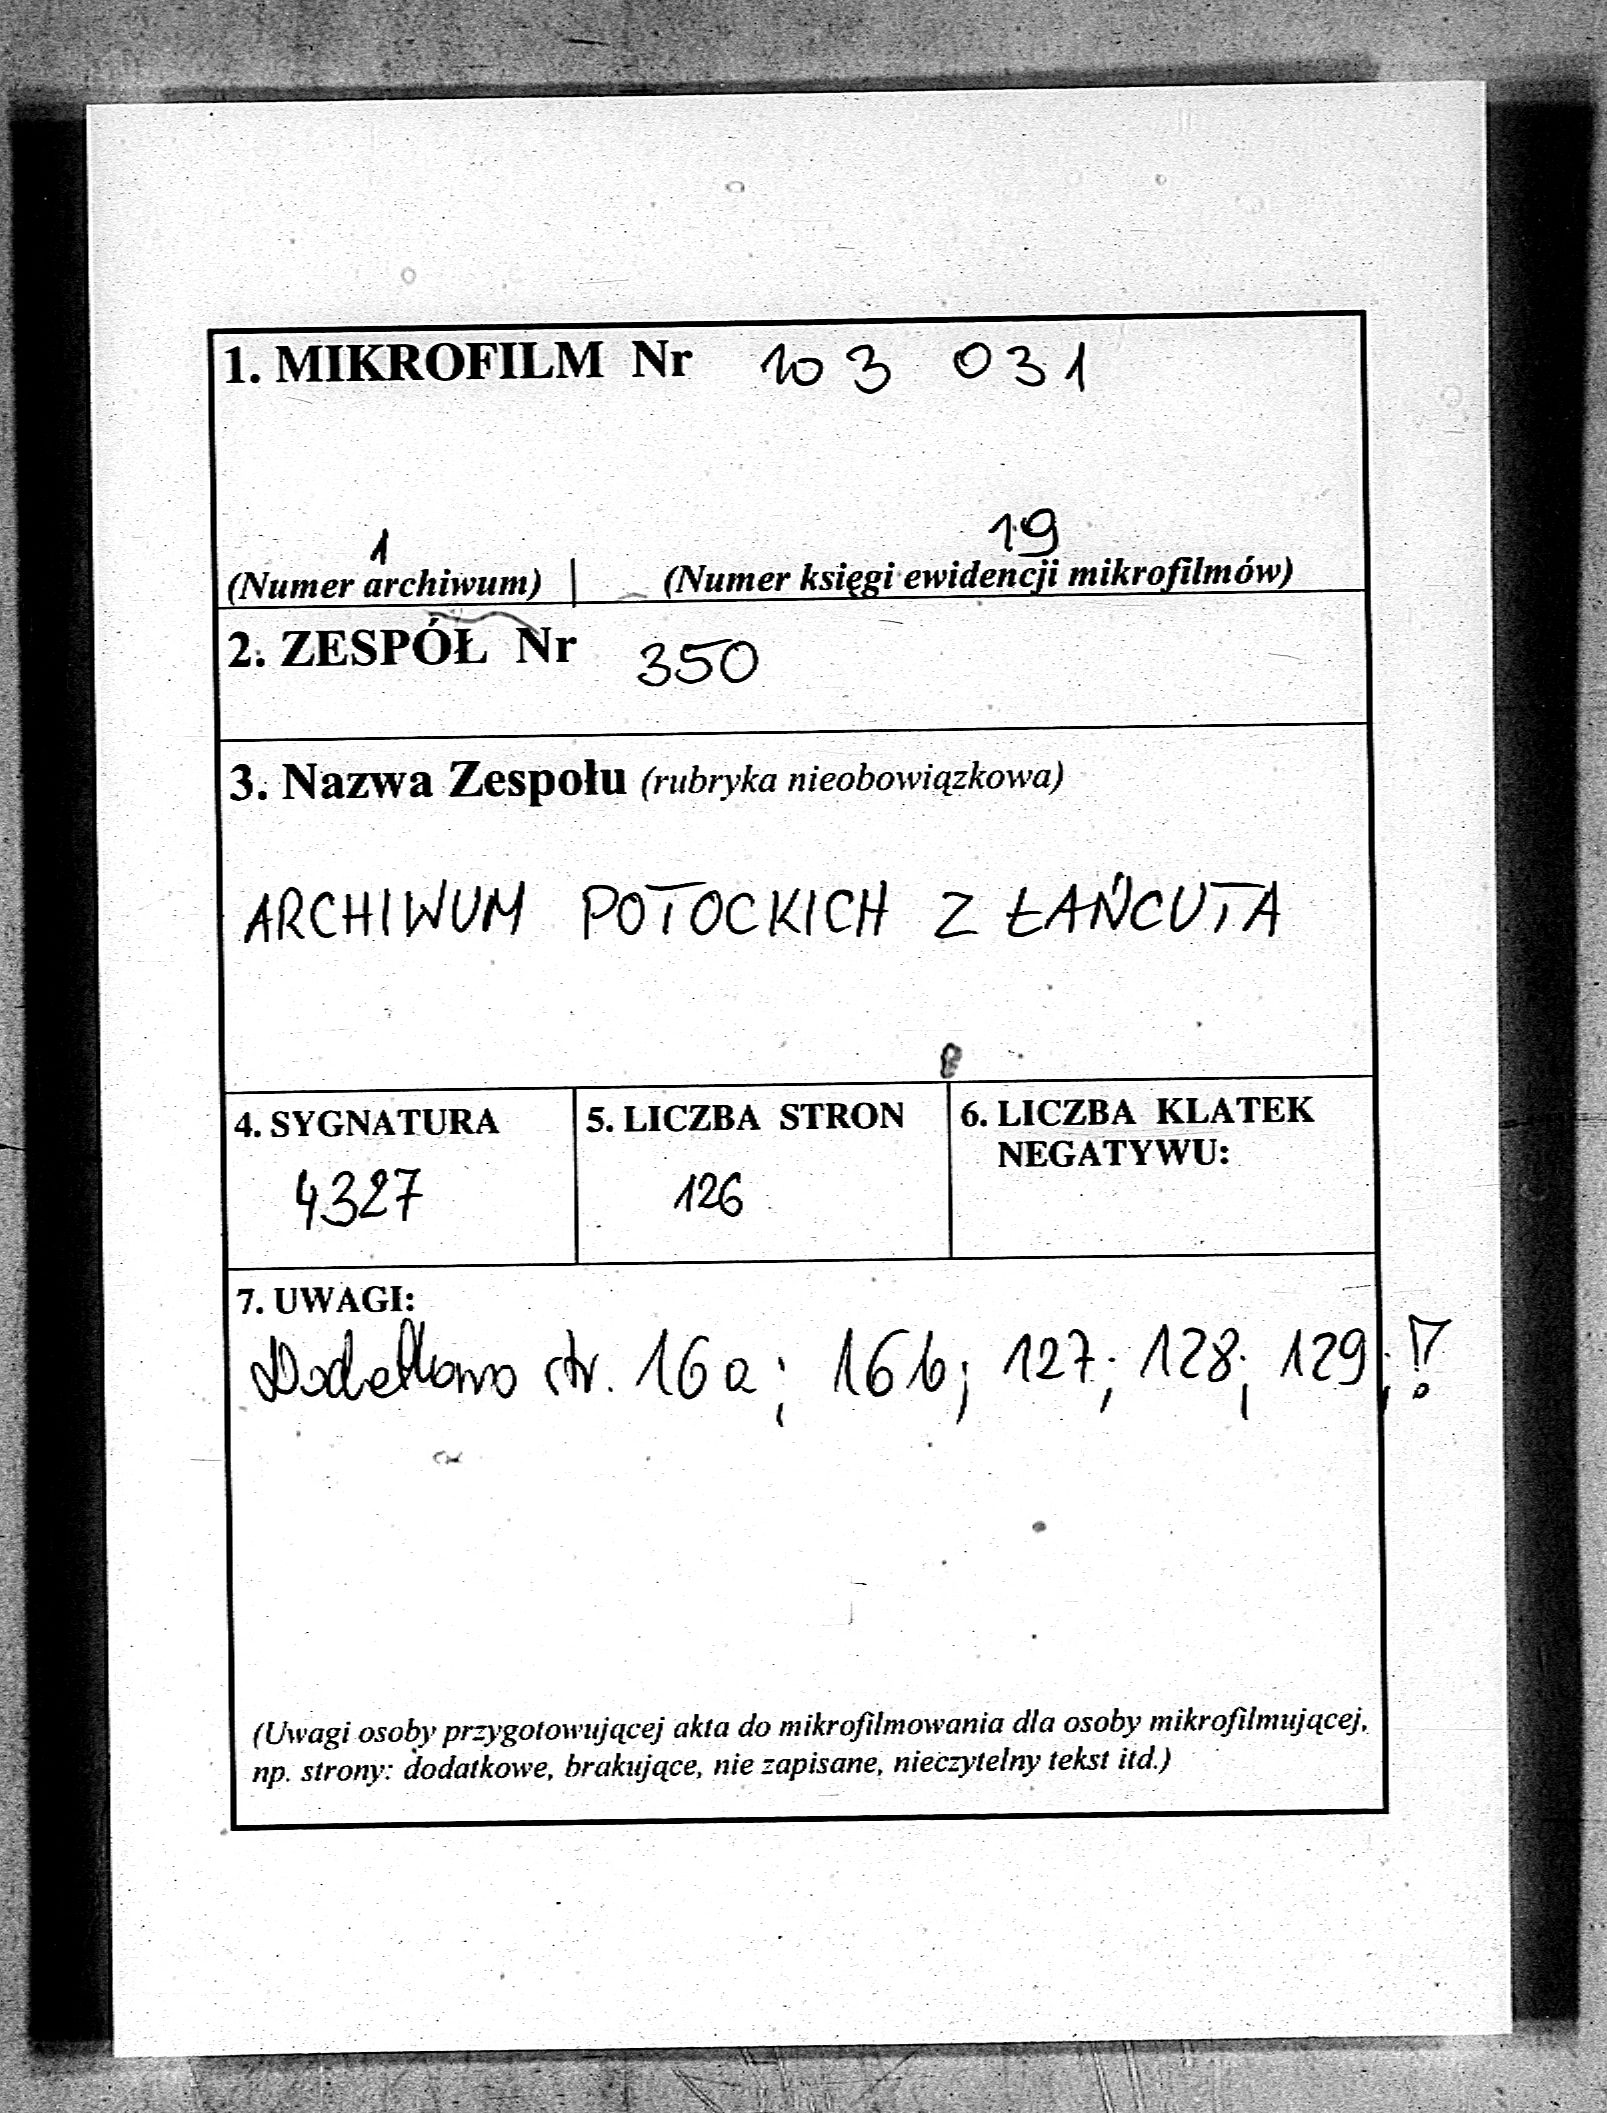 1. MIKROFILM Nr 103 031
1 19
(Numer archiwum) | (Numer księgi ewidencji mikrofilmów)
2. ZESPÓŁ Nr 350
3. Nazwa Zespołu (rubryka nieobowiązkowa)
ARCHIWUM POTOCKICH Z ŁAŃCUTA
4. SYGNATURA
4327
5. LICZBA STRON
126
6. LICZBA KLATEK
NEGATYWU:
7. UWAGI:
Dodatkowo str. 16a; 16b; 127; 128; 129; !
(Uwagi osoby przygotowującej akta do mikrofilmowania dla osoby mikrofilmującej,
np. strony: dodatkowe, brakujące, nie zapisane, nieczytelny tekst itd.)